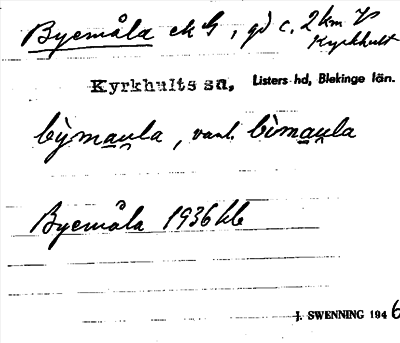 Byemåla ek G, gd c. 2 km
Kyrkhult
Kyrkhults sn, Listers hd, Blekinge län.
bỳmau̯la, vanl. bìmau̯la
Byemåla 1936 kb
J. SWENNING 1946